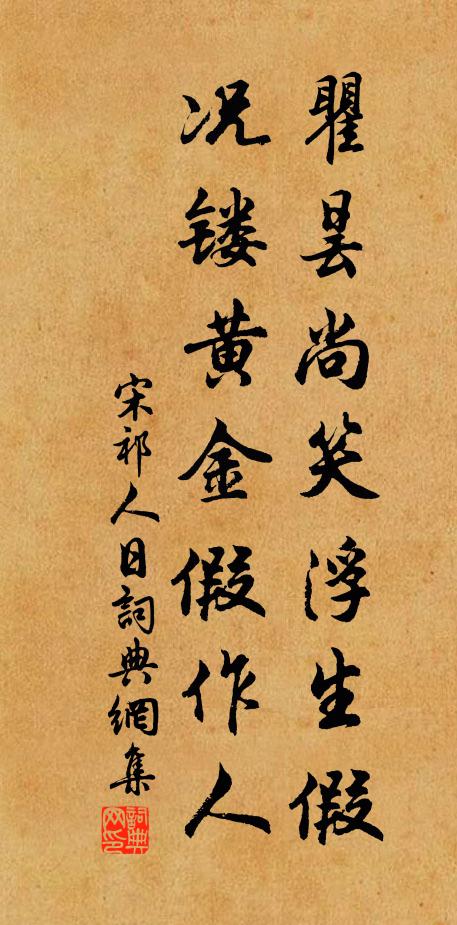 瞿昙尚笑浮生假
况镂黄金假作人
宋祁人日詞典網集
詞典网印